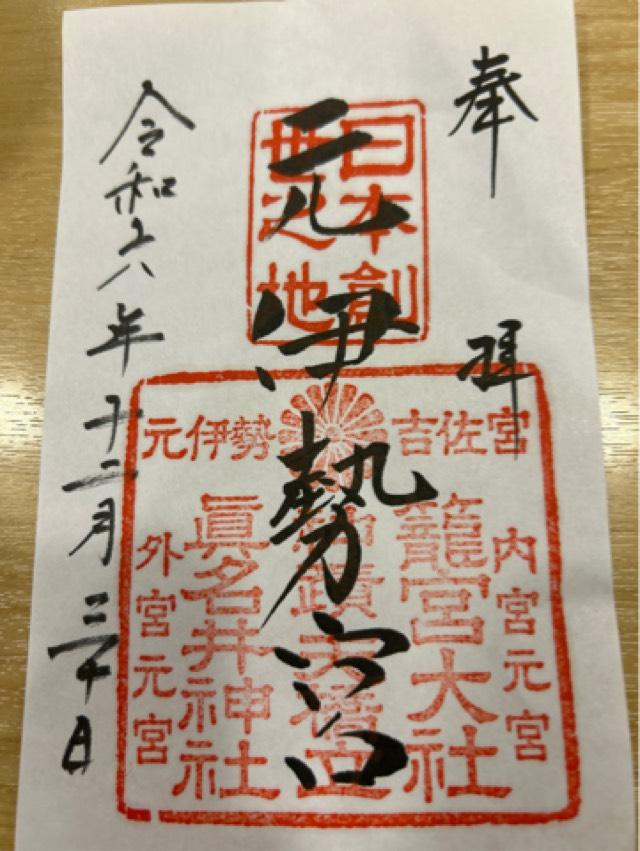 奉拝
日本創
世之地
元伊勢宮
吉佐宮
元伊勢
内宮元宮
籠宮大社
神蹟天橋立
眞名井神社
外宮元宮
令和六年十二月三十日